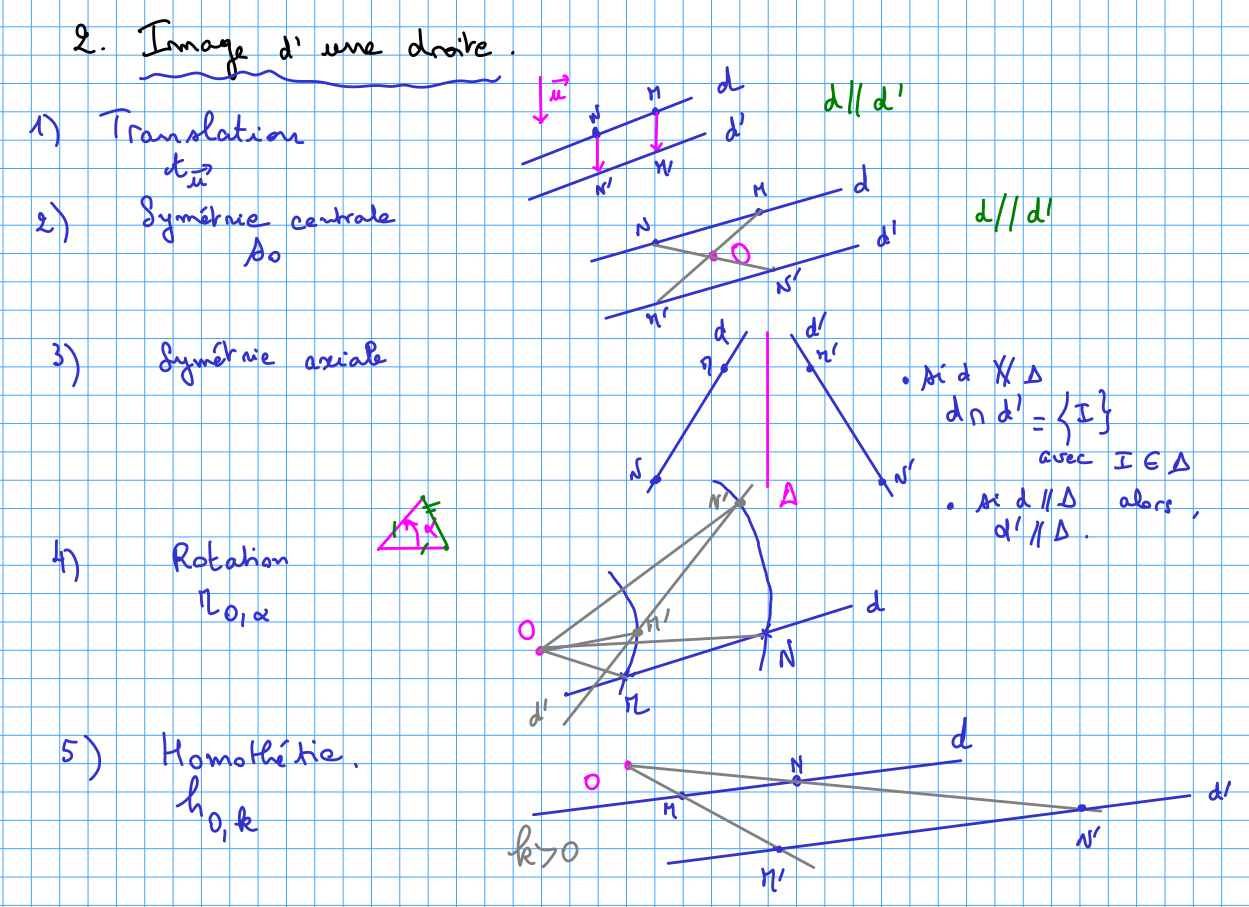 2. Image d'une droite.
1) Translation
t_u⃗
u⃗
N M d
d'
N' M'
d // d'
2) Symétrie centrale
s_O
N M d
O
d'
M' N'
d // d'
3) Symétrie axiale
d d'
M M'
N N'
Δ
• si d ∦ Δ
d ∩ d' = {I}
avec I ∈ Δ
• si d // Δ alors,
d' // Δ.
4) Rotation
r_O,α
α
N'
O M' d
N
d' M
5) Homothétie.
h_O,k
k>0
O N d
M d'
M' N'